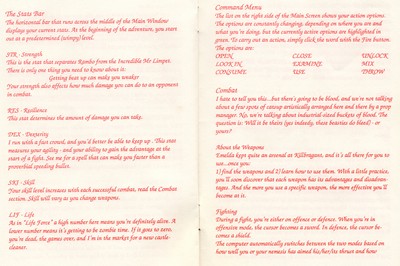 The State Bar
The horizontal bar that runs across the middle of the Main Window
displays your current stats. At the beginning of the adventure, you start
out as a predetermined (wimpy) level.
STR - Strength
This is the stat that separates Rambo from the Incredible Mr Limpet.
There is only one thing you need to know about it.
Getting beat up can make you weaker
Your strength also affects how much damage you can do to an opponent
in combat.
RES - Resilience
This stat determines the amount of damage you can take.
DEX - Dexterity
I run with a fast crowd, and you'd better be able to keep up. This stat
measures your agility - and your ability to gain the advantage at the
start of a fight. See me for a spell that can make you faster than a
proverbial speeding bullet.
SKI - Skill
Your skill level increases with each successful combat, read the Combat
section. Skill will vary as you change weapons.
LIF - Life
As in "Life Force" a high number here means you're definitely alive. A
lower number means it's getting to be zombie time. If it goes to zero,
you're dead, the games over, and I'm in the market for a new castle-
cleaner.
Command Menu
The list on the right side of the Main Screen shows your action options.
The options are constantly changing, depending on where you are and
what you're doing, but the currently active options are highlighted in
green. To carry out an action, simply click the word with the Fire button.
The options are:
OPEN CLOSE UNLOCK
LOOK IN EXAMINE MIX
CONSUME USE THROW
Combat
I hate to tell you this...but there's going to be blood, and we're not talking
about a few spots of catsup artistically arranged here and there by a prop
manager: No, we're talking about industrial sized buckets of blood. The
question is: Will it be theirs (yes indeedy, these beasties do bleed) - or
yours?
About the Weapons
Emelda kept quite an arsenal at Killbragant, and it's all there for you to
use...once you:
1) find the weapons and 2) learn how to use them. With a little practice,
you'll soon discover that each weapon has its advantages and disadvan-
tages. And the more you use a specific weapon, the more effective you'll
become at it.
Fighting
During a fight, you're either on offense or defence. When you're in
offensive mode, the cursor becomes a sword. In defence, the cursor be-
comes a shield.
The computer automatically switches between the two modes based on
how well you or your nemesis has aimed his/her/its thrust and how